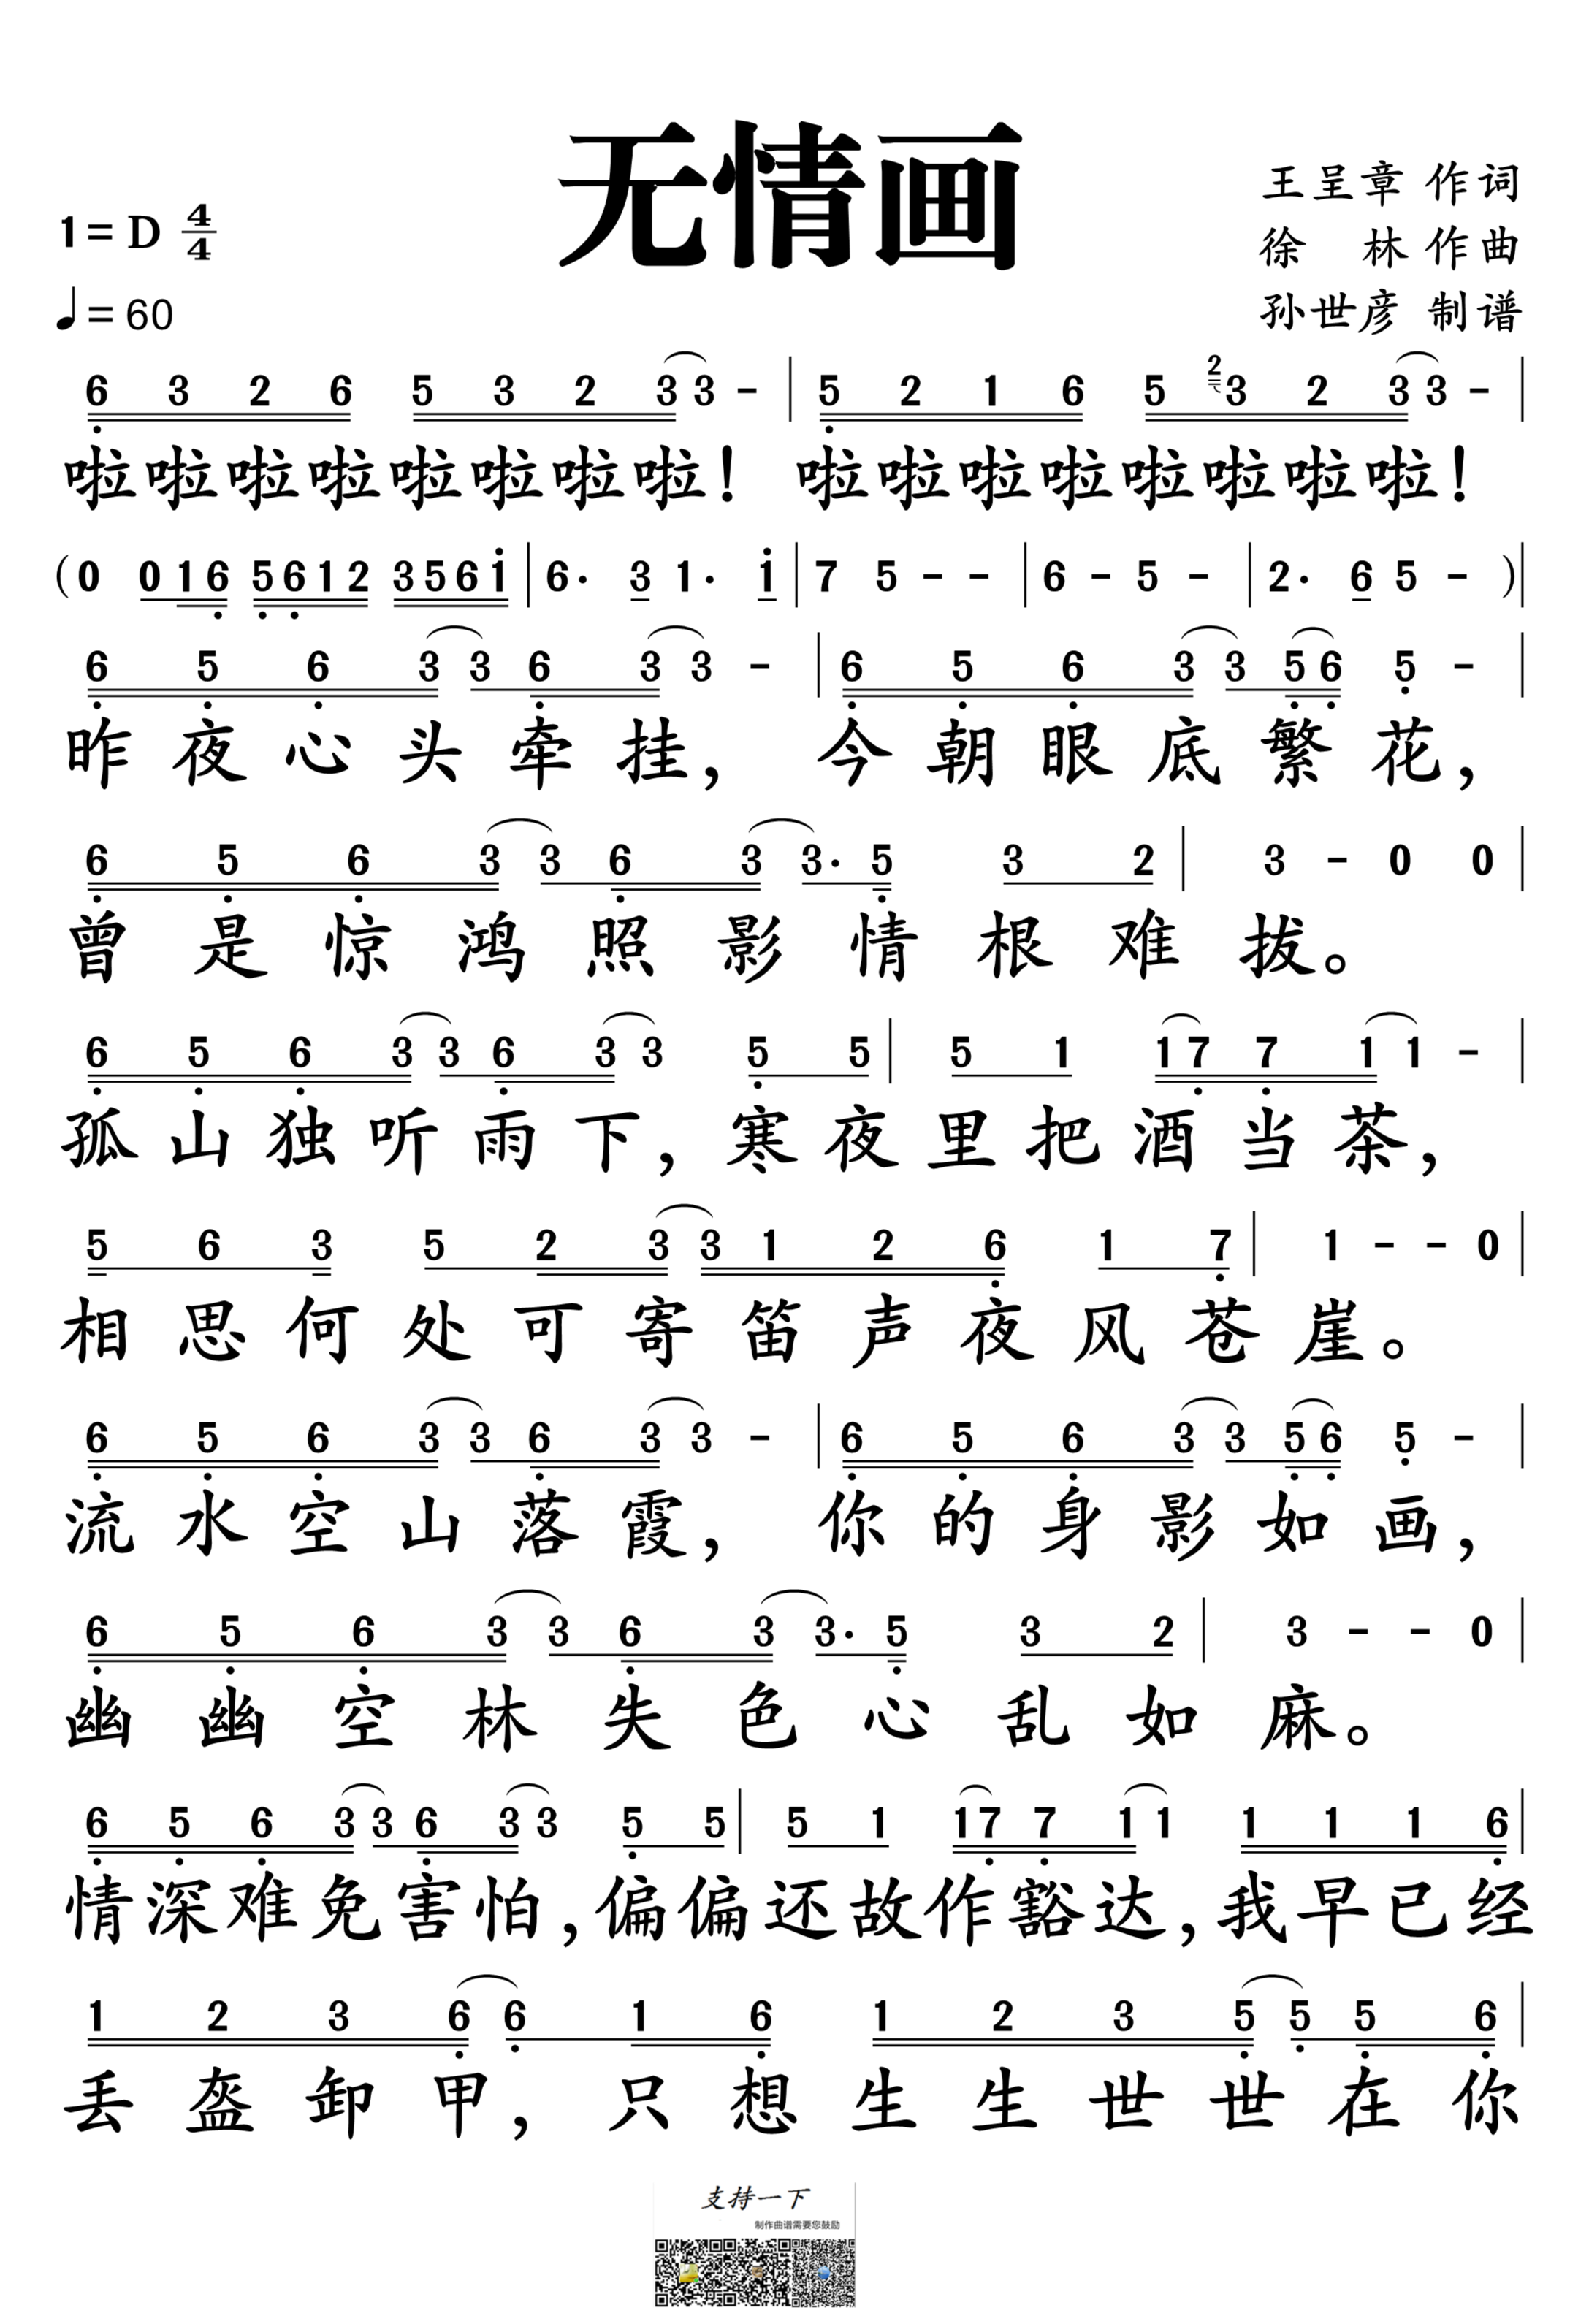 无情画
1= D 4/4
♩= 60
王呈章 作词
徐 林 作曲
孙世彦 制谱
6̣ 3 2 6 5 3 2 3 3 - | 5̣ 2 1 6 5 2 3 2 3 3 - |
啦啦啦啦啦啦啦啦! 啦啦啦啦啦啦啦啦!
(0 0 1 6̣ 5̣ 6̣ 1 2 3 5 6 i | 6· 3 1· i | 7 5 - - | 6 - 5 - | 2· 6 5 - )|
6̣ 5̣ 6̣ 3 3 6̣ 3 3 - | 6̣ 5̣ 6̣ 3 3 5̣ 6̣ 5̣ - |
昨夜心头牵挂，今朝眼底繁花，
6̣ 5̣ 6̣ 3 3 6̣ 3 3· 5̣ 3 2 | 3 - 0 0 |
曾是惊鸿照影情根难拔。
6̣ 5̣ 6̣ 3 3 6̣ 3 3 5̣ 5 | 5 1 1 7̣ 7̣ 1 1 - |
孤山独听雨下，寒夜里把酒当茶，
5 6 3 5 2 3 3 1 2 6̣ 1 7̣ | 1 - - 0 |
相思何处可寄笛声夜风苍崖。
6̣ 5̣ 6̣ 3 3 6̣ 3 3 - | 6̣ 5̣ 6̣ 3 3 5̣ 6̣ 5̣ - |
流水空山落霞，你的身影如画，
6̣ 5̣ 6̣ 3 3 6̣ 3 3· 5̣ 3 2 | 3 - - 0 |
幽幽空林失色心乱如麻。
6̣ 5̣ 6̣ 3 3 6̣ 3 3 5̣ 5 | 5 1 1 7̣ 7̣ 1 1 1 1 1 6̣ |
情深难免害怕，偏偏还故作豁达，我早已经
1 2 3 6̣ 6̣ 1 6̣ 1 2 3 5̣ 5̣ 5̣ 6̣ |
丢盔卸甲，只想生生世世在你
支持一下
制作曲谱需要您鼓励